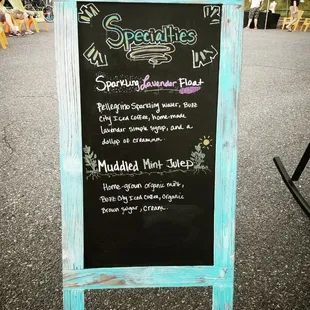 Specialties
Sparkling Lavender Float
Pellegrino Sparkling Water, Buzz
City Iced Coffee, home-made
lavender simple syrup, and a
dollop of creammm.
Muddled Mint Julep
Home-grown organic mint,
Buzz City Iced Coffee, Organic
Brown Sugar, Cream.